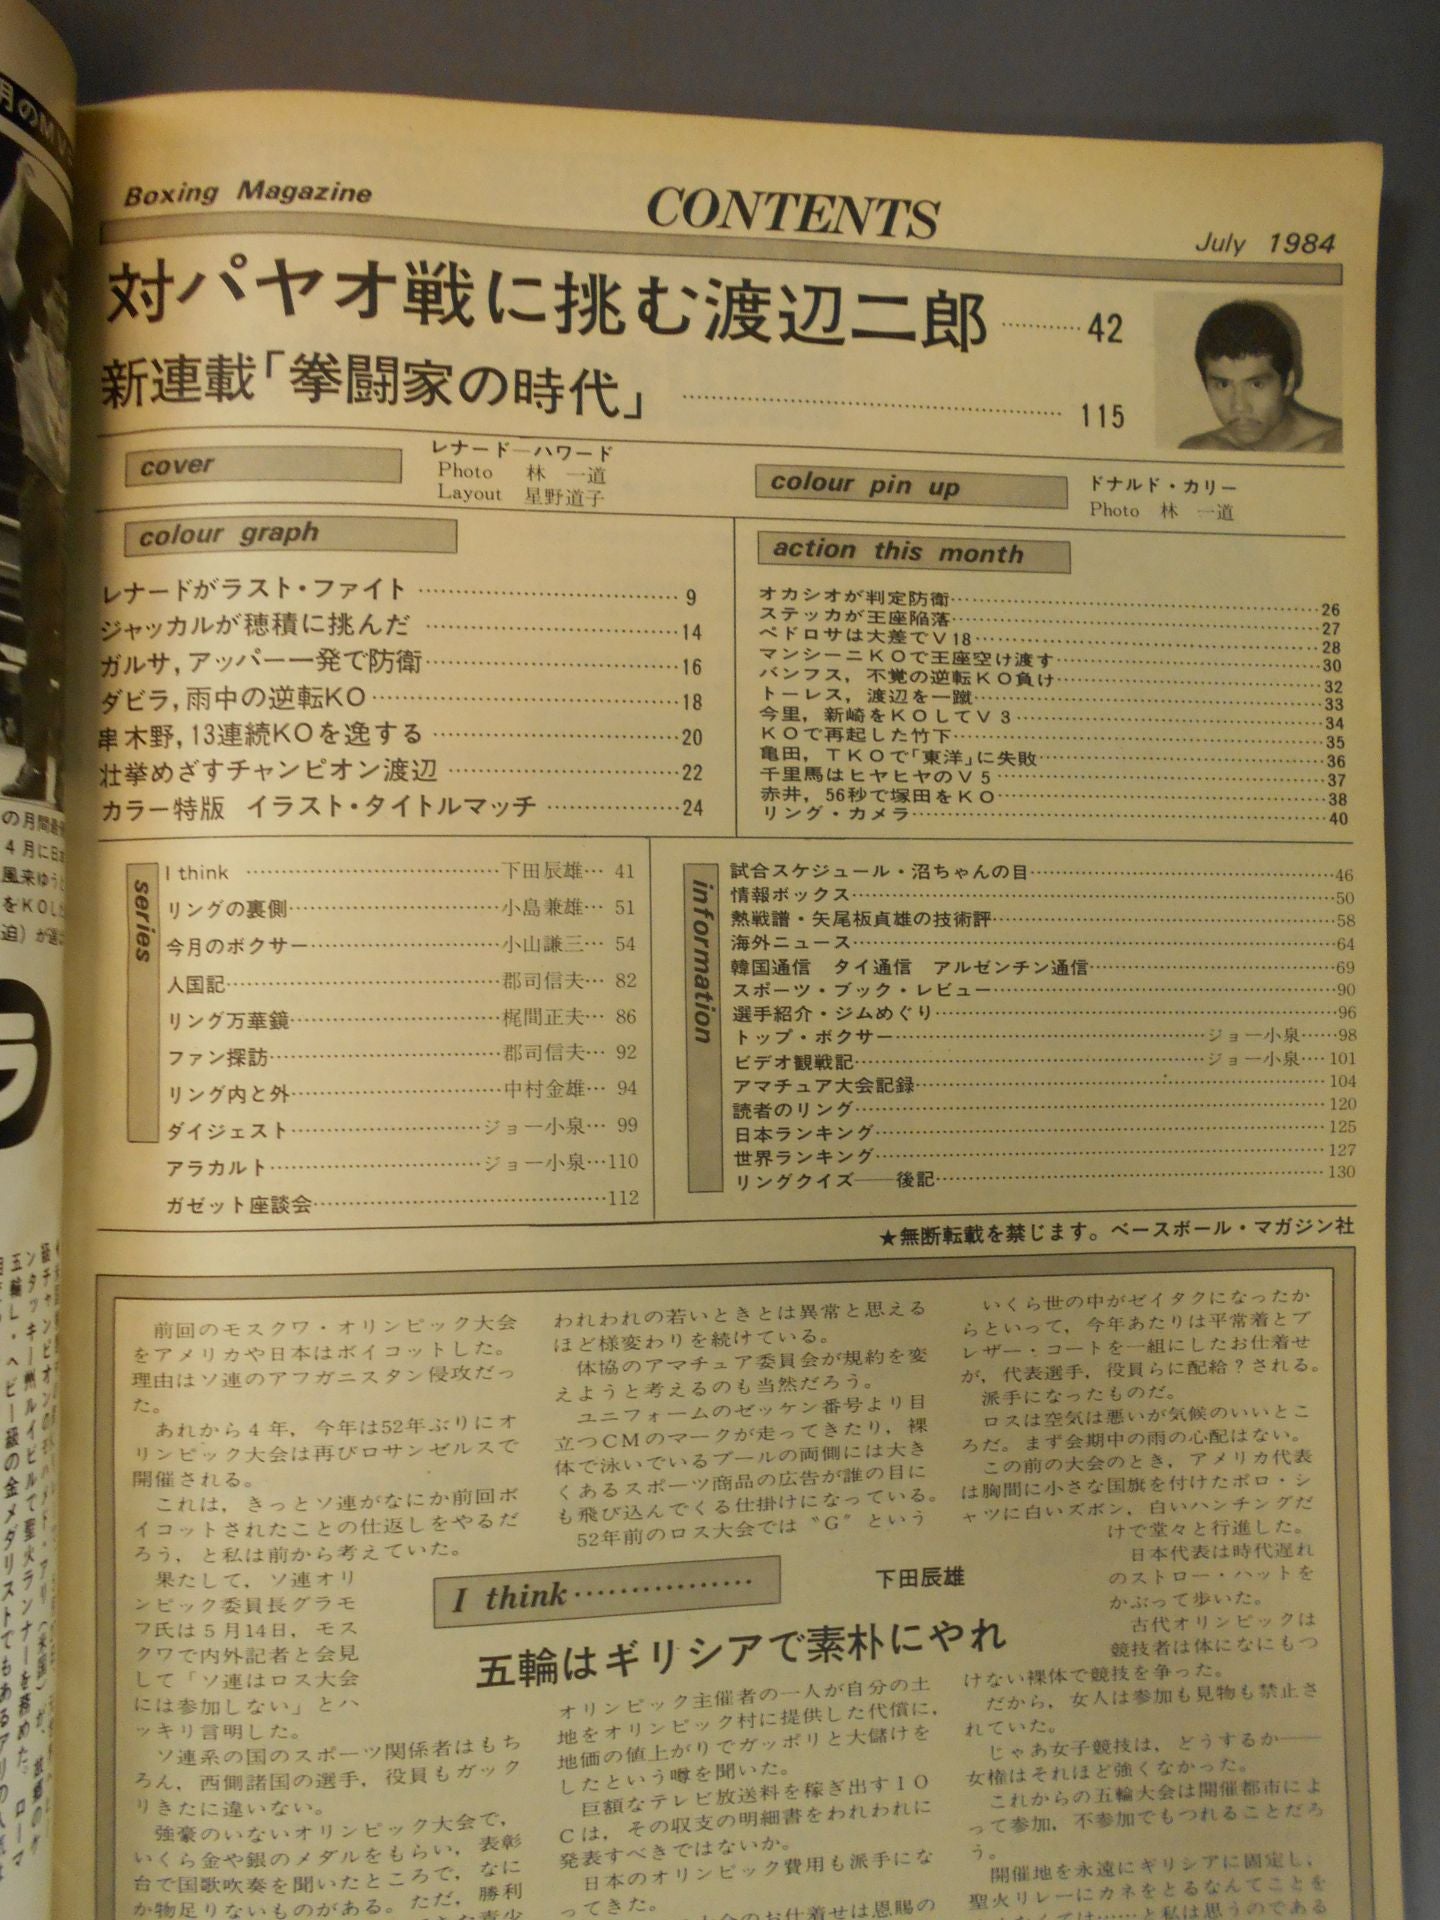 Boxing Magazine
CONTENTS
July 1984
対パヤオ戦に挑む渡辺二郎…………42
新連載「拳闘家の時代」………………115
cover
レナード―ハワード
Photo 林 一道
Layout 星野道子
colour pin up
ドナルド・カリー
Photo 林 一道
colour graph
レナードがラスト・ファイト…………9
ジャッカルが穂積に挑んだ…………14
ガルサ,アッパー一発で防衛…………16
ダビラ,雨中の逆転KO…………18
串木野,13連続KOを逸する…………20
壮挙めざすチャンピオン渡辺…………22
カラー特版 イラスト・タイトルマッチ…………24
action this month
オカシオが判定防衛…………26
ステッカが王座陥落…………27
ペドロサは大差でV18…………28
マンシーニKOで王座空け渡す…………30
バンフス,不覚の逆転KO負け…………32
トーレス,渡辺を一蹴…………33
今里,新崎をKOしてV3…………34
KOで再起した竹下…………35
亀田,TKOで「東洋」に失敗…………36
千里馬はヒヤヒヤのV5…………37
赤井,56秒で塚田をKO…………38
リング・カメラ…………40
series
I think…………下田辰雄…41
リングの裏側…………小島兼雄…51
今月のボクサー…………小山謙三…54
人国記…………郡司信夫…82
リング万華鏡…………梶間正夫…86
ファン探訪…………郡司信夫…92
リング内と外…………中村金雄…94
ダイジェスト…………ジョー小泉…99
アラカルト…………ジョー小泉…110
ガゼット座談会…………112
information
試合スケジュール・沼ちゃんの目…………46
情報ボックス…………50
熱戦譜・矢尾板貞雄の技術評…………58
海外ニュース…………64
韓国通信 タイ通信 アルゼンチン通信…………69
スポーツ・ブック・レビュー…………90
選手紹介・ジムめぐり…………96
トップ・ボクサー…………ジョー小泉……98
ビデオ観戦記…………ジョー小泉…101
アマチュア大会記録…………104
読者のリング…………120
日本ランキング…………125
世界ランキング…………127
リングクイズ――後記…………130
★無断転載を禁じます。ベースボール・マガジン社
前回のモスクワ・オリンピック大会
をアメリカや日本はボイコットした。
理由はソ連のアフガニスタン侵攻だっ
た。
あれから4年,今年は52年ぶりにオ
リンピック大会は再びロサンゼルスで
開催される。
これは,きっとソ連がなにか前回ボ
イコットされたことの仕返しをやるだ
ろう,と私は前から考えていた。
果たして,ソ連オリ
ンピック委員長グラモ
フ氏は5月14日,モス
クワで内外記者と会見
して「ソ連はロス大会
には参加しない」とハ
ッキリ言明した。
ソ連系の国のスポーツ関係者はもち
ろん,西側諸国の選手,役員もガック
リきたに違いない。
強豪のいないオリンピック大会で,
いくら金や銀のメダルをもらい,表彰
台で国歌吹奏を聞いたところで,なに
か物足りないものがある。ただ,勝利
われわれの若いときとは異常と思える
ほど様変わりを続けている。
体協のアマチュア委員会が規約を変
えようと考えるのも当然だろう。
ユニフォームのゼッケン番号より目
立つCMのマークが走ってきたり,裸
体で泳いでいるプールの両側には大き
くあるスポーツ商品の広告が誰の目に
も飛び込んでくる仕掛けになっている。
52年前のロス大会では〝G〟という
I think………………
下田辰雄
五輪はギリシアで素朴にやれ
オリンピック主催者の一人が自分の土
地をオリンピック村に提供した代償に,
地価の値上がりでガッポリと大儲けを
したという噂を聞いた。
巨額なテレビ放送料を稼ぎ出すIO
Cは,その収支の明細書をわれわれに
発表すべきではないか。
日本のオリンピック費用も派手にな
ってきた。
いくら世の中がゼイタクになったか
らといって,今年あたりは平常着とブ
レザー・コートを一組にしたお仕着せ
が,代表選手,役員らに配給？される。
派手になったものだ。
ロスは空気は悪いが気候のいいとこ
ろだ。まず会期中の雨の心配はない。
この前の大会のとき,アメリカ代表
は胸間に小さな国旗を付けたポロ・シ
ャツに白いズボン,白いハンチングだ
けで堂々と行進した。
日本代表は時代遅れ
のストロー・ハットを
かぶって歩いた。
古代オリンピックは
競技者は体になにもつ
けない裸体で競技を争った。
だから,女人は参加も見物も禁止さ
れていた。
じゃあ女子競技は,どうするか――
女権はそれほど強くなかった。
これからの五輪大会は開催都市によ
って参加,不参加でもつれることだろ
う。
開催地を永遠にギリシアに固定し,
聖火リレーにカネをとるなんてことを